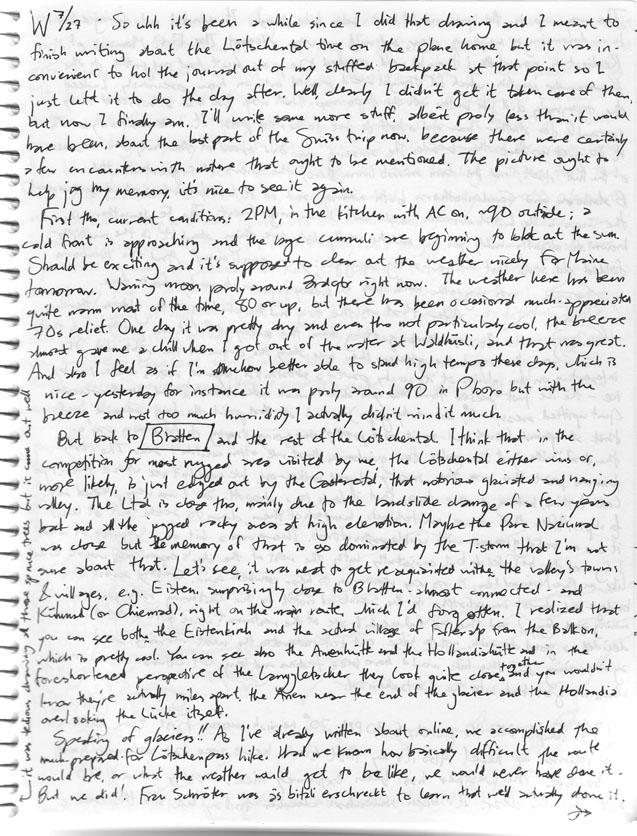 W 7/27 : So uhh it's been a while since I did that drawing and I meant to
finish writing about the Lötschental time on the plane home but it was in-
convenient to hol the journal out of my stuffed backpack at that point so I
just left it to do the day after. Well, clearly I didn't get it taken care of then,
but now I finally am. I'll write some more stuff, albeit probly less than it would
have been, about the last part of the Swiss trip now, because there were certainly
a few encounters with nature that ought to be mentioned. The picture ought to
help jog my memory, it's nice to see it again.
First tho, current conditions: 2PM, in the kitchen with AC on, ~90 outside; a
cold front is approaching and the large cumuli are beginning to blot out the sun.
Should be exciting and it's supposed to clear out the weather nicely for Maine
tomorrow. Waning moon, probly around 3rdqtr right now. The weather here has been
quite warm most of the time, 80 or up, but there has been occasional much-appreciated
70s relief. One day it was pretty dry and even tho not particularly cool, the breeze
almost gave me a chill when I got out of the water at Waldhüsli, and that was great.
And also I feel as if I'm somehow better able to stand high temps these days, which is
nice - yesterday for instance it was probly around 90 in Pboro but with the
breeze and not too much humidity I actually didn't mind it much.
But back to Blatten and the rest of the Lötschental. I think that in the
competition for most rugged area visited by me, the Lötschental either wins or,
more likely, is just edged out by the Gasteretal, that notorious glaciated and hanging
valley. The Ltal is close tho, mainly due to the landslide damage of a few years
back and all the jagged rocky area at high elevation. Maybe the Parc Naziunal
was close but the memory of that is so dominated by the T-storm that I'm not
sure about that. Let's see, it was neat to get reacquainted with the valley's towns
& villages, e.g. Eisten, surprisingly close to Blatten - almost connected - and
Kühmad (or Chiemad), right on the main route, which I'd forgotten. I realized that
you can see both the Eistenbirch and the actual village of Fafleralp from the Balkon,
which is pretty cool. You can see also the Anenhütte and the Hollandiahütte and in the
foreshortened perspective of the Langgletscher they look quite close together and you wouldn't
know they're actually miles apart, the Anen near the end of the glacier and the Hollandia
overlooking the Lücke itself.
Speaking of glaciers!! As I've already written about online, we accomplished the
much-prepared-for Lötschenpass hike. Had we known how basically difficult the route
would be, or what the weather would get to be like, we would never have done it.
But we did! Frau Schröter was äs bitzli erschreckt to learn that we'd actually done it,
it was tedious drawing all those spruce trees but it came out well